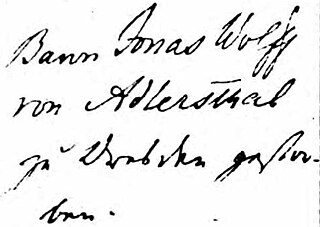 Baron Jonas Wolff
von Adlersthal
zu Dresden gestor-
ben.